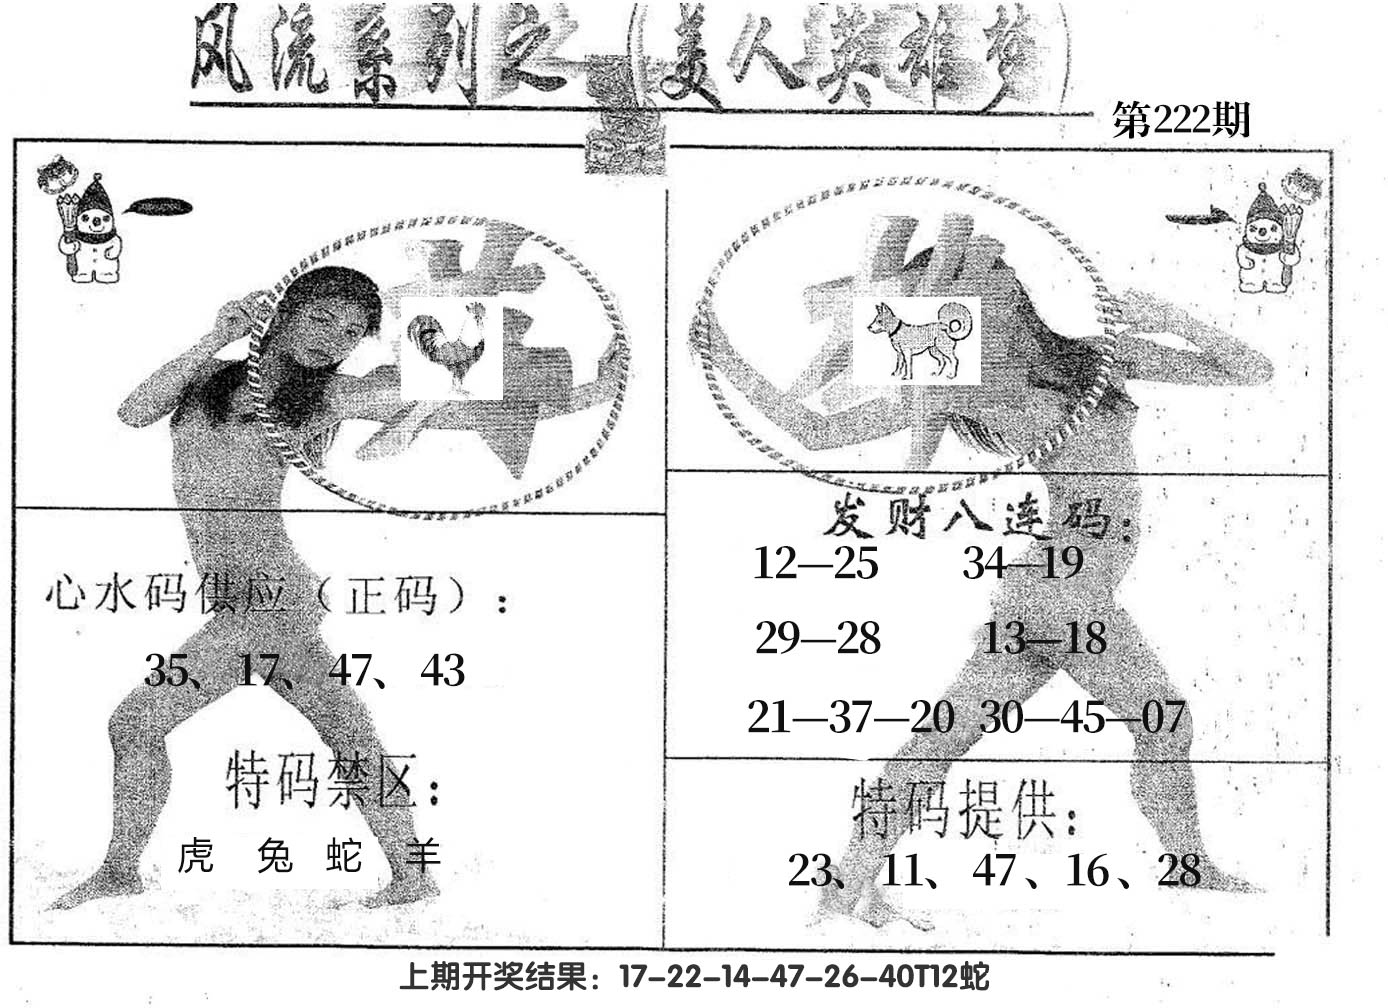 风流系列之（美人英雄梦）
第222期
心水码供应（正码）：
35、17、47、43
特码禁区：
虎 兔 蛇 羊
发财八连码：
12—25 34—19
29—28 13—18
21—37—20 30—45—07
特码提供：
23、11、47、16、28
上期开奖结果：17-22-14-47-26-40T12蛇